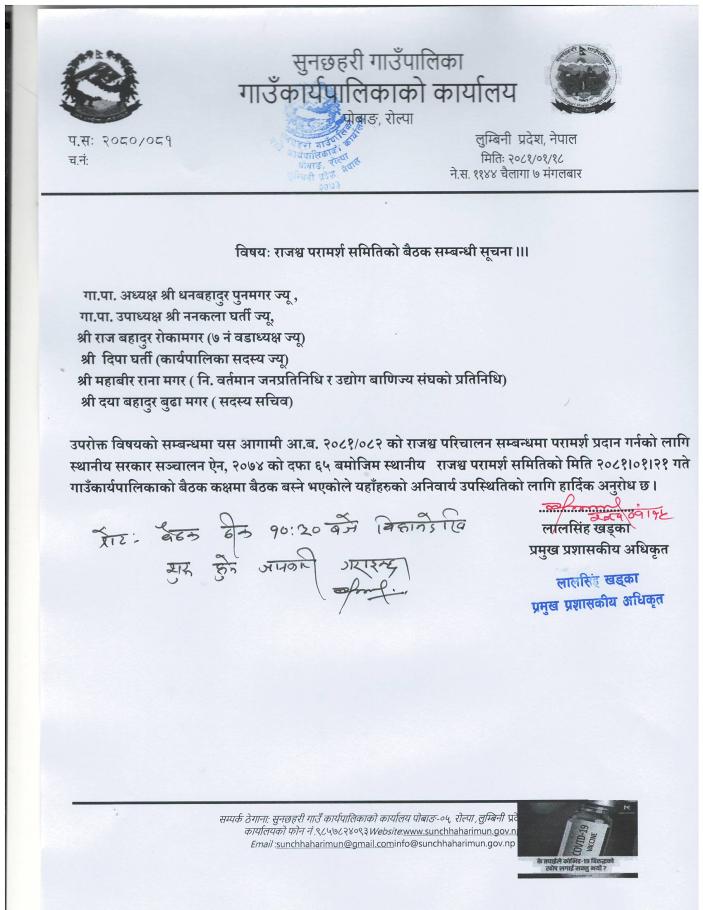 सुनछहरी गाउँपालिका
गाउँकार्यपालिकाको कार्यालय
पोबाङ, रोल्पा
प.सः २०८०/०८१
च.नं:
लुम्बिनी प्रदेश, नेपाल
मितिः २०८१/०१/१८
ने.स. ११४४ चैलागा ७ मंगलबार
विषयः राजश्व परामर्श समितिको बैठक सम्बन्धी सूचना ।।।
गा.पा. अध्यक्ष श्री धनबहादुर पुनमगर ज्यू ,
गा.पा. उपाध्यक्ष श्री ननकला घर्ती ज्यू,
श्री राज बहादुर रोकामगर (७ नं वडाध्यक्ष ज्यू)
श्री दिपा घर्ती (कार्यपालिका सदस्य ज्यू)
श्री महाबीर राना मगर ( नि. वर्तमान जनप्रतिनिधि र उद्योग बाणिज्य संघको प्रतिनिधि)
श्री दया बहादुर बुढा मगर ( सदस्य सचिव)
उपरोक्त विषयको सम्बन्धमा यस आगामी आ.ब. २०८१/०८२ को राजश्व परिचालन सम्बन्धमा परामर्श प्रदान गर्नको लागि
स्थानीय सरकार सञ्चालन ऐन, २०७४ को दफा ६५ बमोजिम स्थानीय राजश्व परामर्श समितिको मिति २०८१।०१।२१ गते
गाउँकार्यपालिकाको बैठक कक्षमा बैठक बस्ने भएकोले यहाँहरुको अनिवार्य उपस्थितिको लागि हार्दिक अनुरोध छ।
लालसिंह खड्का
प्रमुख प्रशासकीय अधिकृत
लालसिंह खड्का
प्रमुख प्रशासकीय अधिकृत
नोटः बैठक ठीक १०:३० बजे बिहानदेखि
सुरु हुने जानकारी गराइन्छ
सम्पर्क ठेगाना: सुनछहरी गाउँ कार्यपालिकाको कार्यालय पोबाङ-०५, रोल्पा, लुम्बिनी प्रदे
कार्यालयको फोन नं.९८५७८२४०९३ Website:www.sunchhaharimun.gov.np
Email :sunchhaharimun@gmail.cominfo@sunchhaharimun.gov.np
COVID-19
VACCINE
के तपाईले कोभिड-१९ विरुद्धको
खोप लगाई सक्नु भयो ?